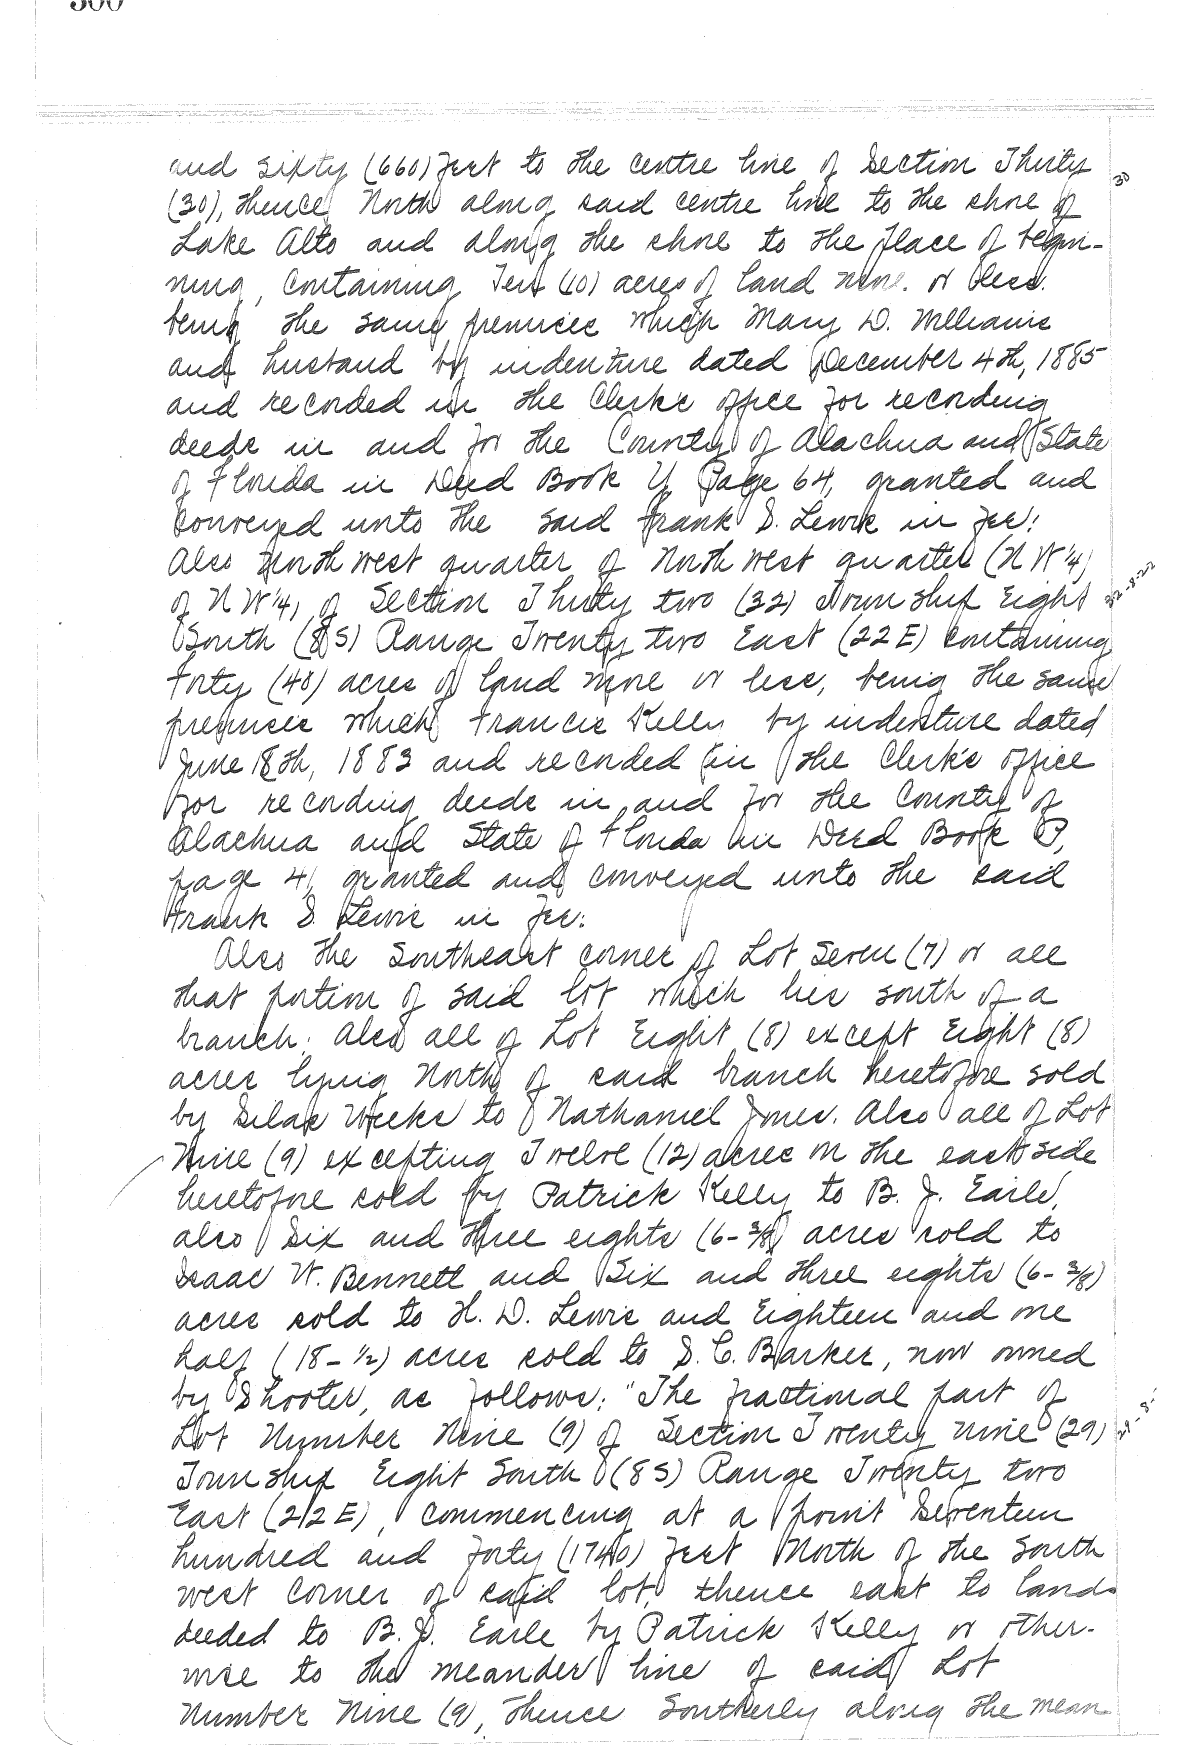 300
and sixty (660) feet to the centre line of Section Thirty
30
(30), thence North along said centre line to the shore of
Lake Alto and along the shore to the place of begin-
ning, containing Ten (10) acres of land more or less.
being the same premises which Mary D. Williams
and husband by indenture dated December 4th, 1885
and recorded in the Clerk's office for recording
deeds in and for the County of Alachua and State
of Florida in Deed Book Y Page 64, granted and
conveyed unto the said Frank S. Lewis in fee:
Also North west quarter of North west quarter (N W 1/4)
of N W 1/4) of Section Thirty two (32) Township Eight
32-8-22
South (8 S) Range Twenty two East (22 E) containing
forty (40) acres of land more or less, being the same
premises which Francis Kelly by indenture dated
June 18th, 1883 and recorded in the Clerk's office
for recording deeds in and for the County of
Alachua and State of Florida in Deed Book P,
page 41, granted and conveyed unto the said
Frank S. Lewis in fee:
Also the Southeast corner of Lot Seven (7) or all
that portion of said lot which lies south of a
branch; Also all of Lot Eight (8) except Eight (8)
acres lying North of said branch heretofore sold
by Silas Weeks to Nathaniel Jones. Also all of Lot
Nine (9) excepting Twelve (12) acres on the east side
heretofore sold by Patrick Kelly to B. J. Earle,
also Six and three eights (6-3/8) acres sold to
Isaac W. Bennett and Six and three eights (6-3/8)
acres sold to H. D. Lewis and Eighteen and one
half (18-1/2) acres sold to S. C. Barker, now owned
by Shooter, as follows: "The fractional part of
Lot Number Nine (9) of Section Twenty nine (29)
29-8-
Township Eight South (8 S) Range Twenty two
East (22 E), commencing at a point Seventeen
hundred and forty (1740) feet North of the South
west corner of said lot, thence east to lands
deeded to B. J. Earle by Patrick Kelly or other-
wise to the meander line of said Lot
Number Nine (9), thence Southerly along the mean